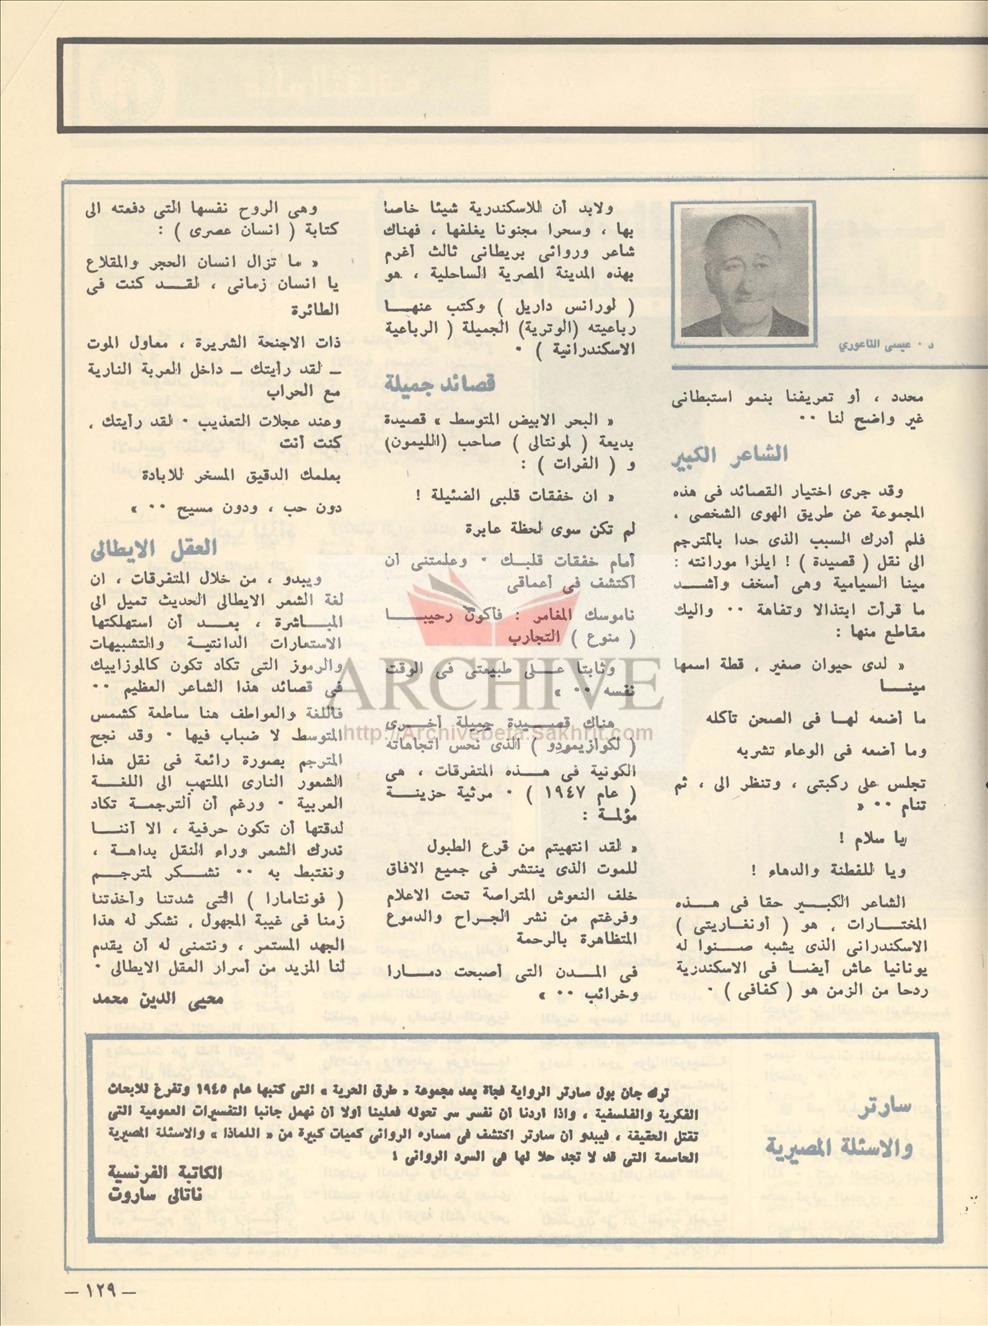 د ٠ عيسى الناعوري
محدد ، أو تعريفنا بنمو استبطانى
غير واضح لنا ٠٠
الشاعر الكبير
وقد جرى اختيار القصائد فى هذه
المجموعة عن طريق الهوى الشخصى ،
فلم أدرك السبب الذى حدا بالمترجم
الى نقل ( قصيدة ) ! ايلزا مورانته :
مينا السيامية وهى أسخف وأشــد
ما قرأت ابتذالا وتفاهة ٠٠ واليك
مقاطع منها :
« لدى حيوان صغير ، قطة اسمها
مينــا
ما أضعه لهـا فى الصحن تأكله
وما أضعه فى الوعاء تشربه
تجلس على ركبتى ، وتنظر الى ، ثم
تنام ٠٠ »
يا سلام !
ويا للفطنة والدهاء !
الشاعر الكبــير حقا فى هــذه
المختــارات ، هو ( أونغاريتى )
الاسكندرانى الذى يشبه صــنوا له
يونانيا عاش أيضـا فى الاسكندرية
ردحا من الزمن هو ( كفافى ) ٠
ولابد أن للاسكندرية شيئا خاصا
بها ، وسحرا مجنونا يغلفها ، فهناك
شاعر وروائى بريطانى ثالث أغرم
بهذه المدينة المصرية الساحلية ، هو
( لورانس داريل ) وكتب عنهــا
رباعيته (الوترية) الجميلة ( الرباعية
الاسكندرانية ) ٠
قصائد جميلة
« البحر الابيض المتوسط » قصيدة
بديعة ( لمونتالى ) صاحب (الليمون)
و ( الفرات ) :
« ان خفقات قلبى الضئيلة !
لم تكن سوى لحظة عابرة
أمام خفقات قلبـك ٠ وعلمتنى أن
أكتشف فى أعماقى
ناموسك المغامر : فأكون رحيبــا
( منوع ) التجارب
وثابتا عــلى طبيعتى فى الوقت
نفسه ٠٠ »
هناك قصــيدة جميلة أخــرى
( لكوازيمودو ) الذى نحس اتجاهاته
الكونية فى هــذه المتفرقات ، هى
( عام ١٩٤٧ ) ٠ مرثية حزينــة
مؤلمـة :
« لقد انتهيتم من قرع الطبول
للموت الذى ينتشر فى جميع الافاق
خلف النعوش المتراصة تحت الاعلام
وفرغتم من نشر الجـراح والدموع
المتظاهرة بالرحمة
فى المــدن التى أصبحت دمــارا
وخرائب ٠٠ »
وهى الروح نفسها التى دفعته الى
كتابة ( انسان عصرى ) :
« ما تزال انسان الحجر والمقلاع
يا انسان زمانى ، لقــد كنت فى
الطائرة
ذات الاجنحة الشريرة ، معاول الموت
ـ لقد رأيتك ـ داخل العربة النارية
مع الحراب
وعند عجلات التعذيب ٠ لقد رأيتك ،
كنت أنت
بعلمك الدقيق المسخر للابادة
دون حب ، ودون مسيح ٠٠ »
العقل الايطالى
ويبدو ، من خلال المتفرقات ، ان
لغة الشعر الايطالى الحديث تميل الى
المبــاشرة ، بعــد أن استهلكتها
الاستعارات الدانتية والتشبيهات
والرموز التى تكاد تكون كالموزاييك
فى قصائد هذا الشاعر العظيم ٠٠
فاللغة والعواطف هنا ساطعة كشمس
المتوسط لا ضباب فيها ٠ وقد نجح
المترجم بصورة رائعة فى نقل هذا
الشعور النارى الملتهب الى اللغــة
العربية ٠ ورغم أن الترجمـة تكاد
لدقتها أن تكون حرفية ، الا أننــا
ندرك الشعر وراء النقل بداهـة ،
ونغتبط به ٠٠ نشــكر لمترجــم
( فونتامارا ) التى شدتنا وأخذتنا
زمنا فى غيبة المجهول ، نشكر له هذا
الجهد المستمر ، ونتمنى له أن يقدم
لنا المزيد من أسرار العقل الايطالى ٠
محيى الدين محمد
ARCHIVE
http://Archivebeta.Sakhrit.com
سارتر
والاسئلة المصيرية
ترك جان بول سارتر الرواية فجأة بعد مجموعة « طرق الحرية » التى كتبها عام ١٩٤٥ وتفرغ للابحاث
الفكرية والفلسفية ، واذا اردنا أن نفسر سر تحوله فعلينا أولا أن نهمل جانبا التفسيرات العمومية التى
تقتل الحقيقة ، فيبدو أن سارتر اكتشف فى مساره الروائى كميات كبيرة من « اللماذا » والاسئلة المصيرية
الحاسمة التى قد لا تجد حلا لها فى السرد الروائى !
الكاتبة الفرنسية
ناتالى ساروت
— ١٢٩ —